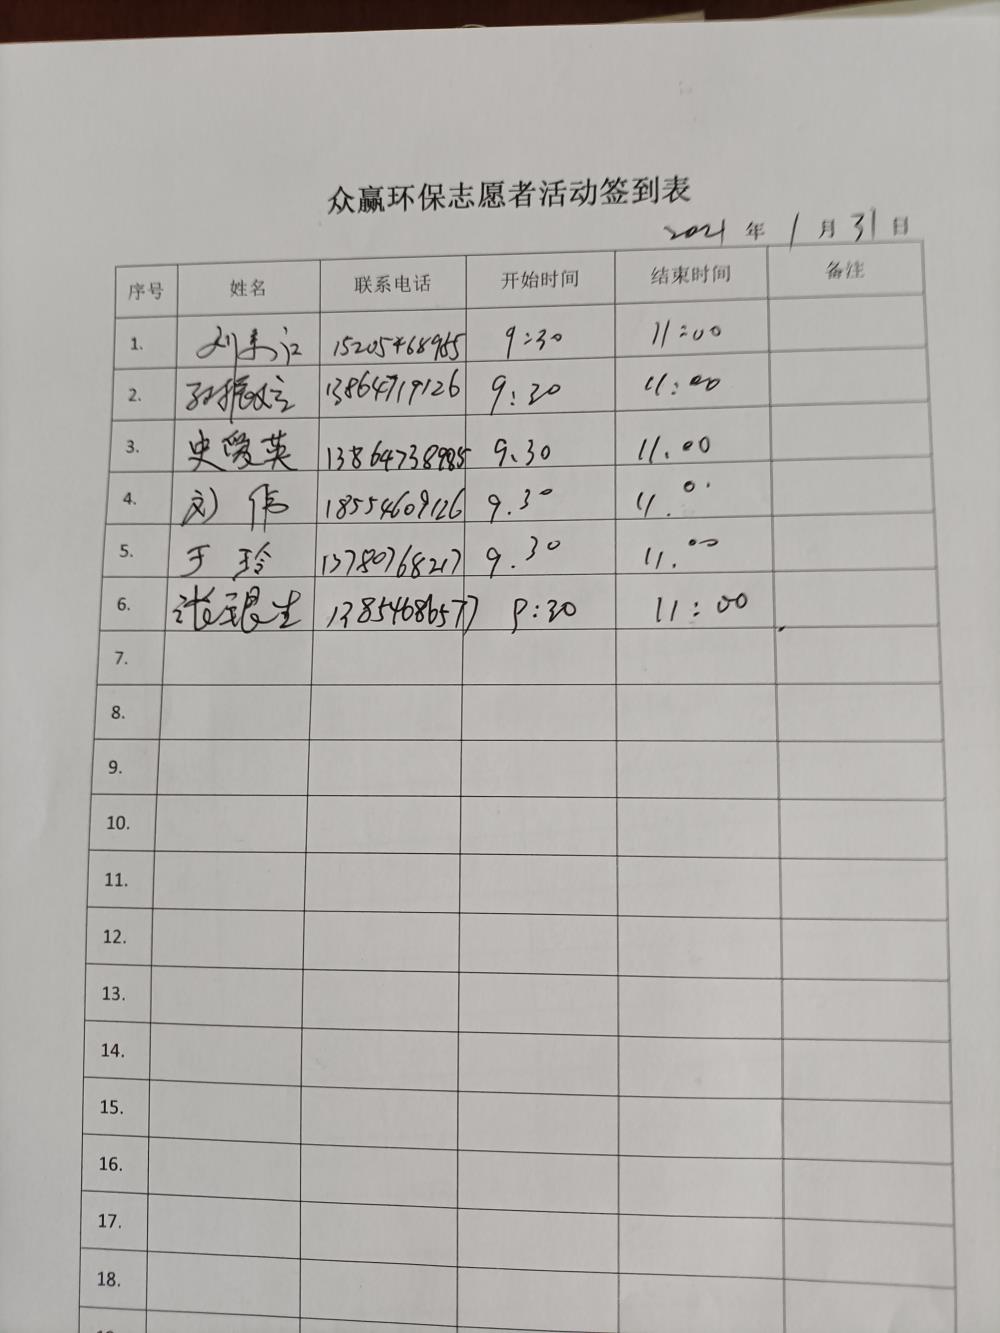 众赢环保志愿者活动签到表
2021 年 1 月 31 日
序号 姓名 联系电话 开始时间 结束时间 备注
1. 刘 江 15205468965 9:30 11:00
2. 孙振 13864719126 9:30 11:00
3. 史爱英 13864738985 9.30 11.00
4. 刘伟 18554609126 9.30 11.00
5. 于玲 13780768217 9.30 11.00
6. 张银生 13854686577 9:30 11:00
7.
8.
9.
10.
11.
12.
13.
14.
15.
16.
17.
18.